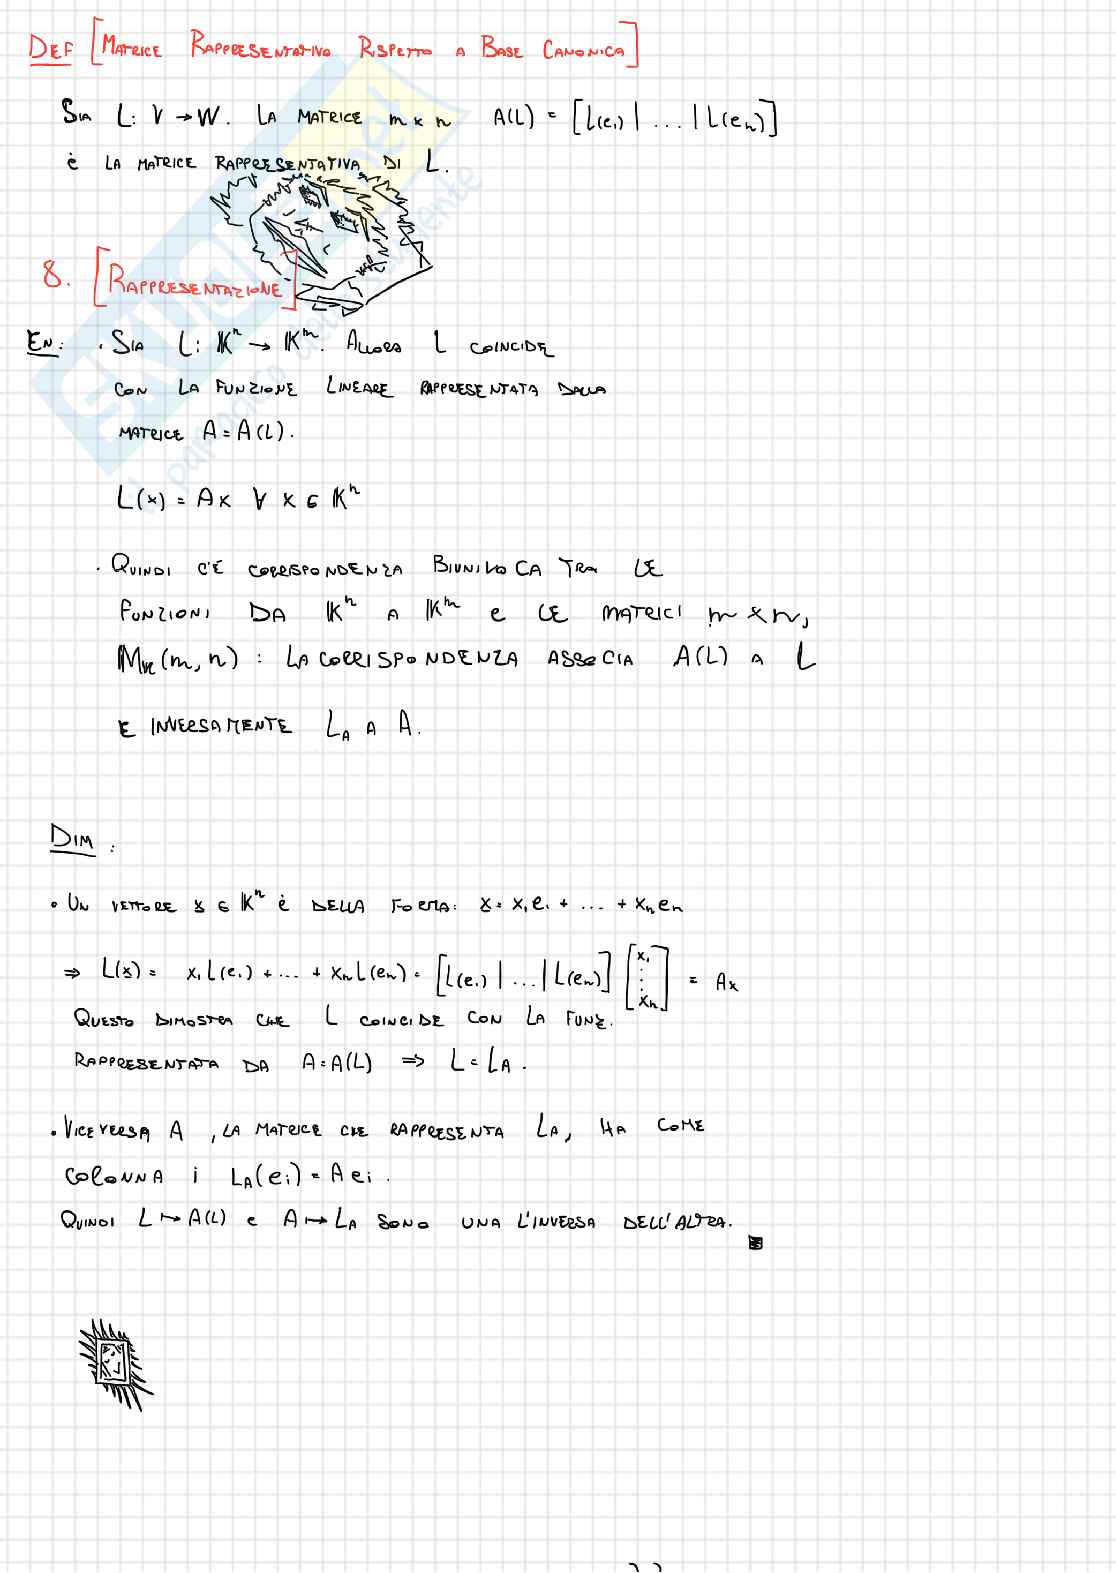 DEF [MATRICE RAPPRESENTATIVA RISPETTO A BASE CANONICA]
SIA L: V → W. LA MATRICE m × n A(L) = [L(e₁) | ... | L(eₙ)]
È LA MATRICE RAPPRESENTATIVA DI L.
8. [RAPPRESENTAZIONE]
EN: • SIA L: 𝕂ⁿ → 𝕂ᵐ. ALLORA L COINCIDE
CON LA FUNZIONE LINEARE RAPPRESENTATA DALLA
MATRICE A = A(L).
L(x) = Ax ∀ x ∈ 𝕂ⁿ
• QUINDI C'È CORRISPONDENZA BIUNIVOCA TRA LE
FUNZIONI DA 𝕂ⁿ A 𝕂ᵐ E LE MATRICI m × n,
M𝕂(m, n) : LA CORRISPONDENZA ASSOCIA A(L) A L
E INVERSAMENTE L_A A A.
DIM :
• UN VETTORE x ∈ 𝕂ⁿ È DELLA FORMA: x = x₁e₁ + ... + xₙeₙ
⇒ L(x) = x₁L(e₁) + ... + xₙL(eₙ) = [L(e₁) | ... | L(eₙ)] [x₁ ⋮ xₙ] = Ax
QUESTO DIMOSTRA CHE L COINCIDE CON LA FUNZ.
RAPPRESENTATA DA A = A(L) ⇒ L = L_A.
• VICEVERSA A, LA MATRICE CHE RAPPRESENTA L_A, HA COME
COLONNA i L_A(eᵢ) = Aeᵢ.
QUINDI L ↦ A(L) E A ↦ L_A SONO UNA L'INVERSA DELL'ALTRA.